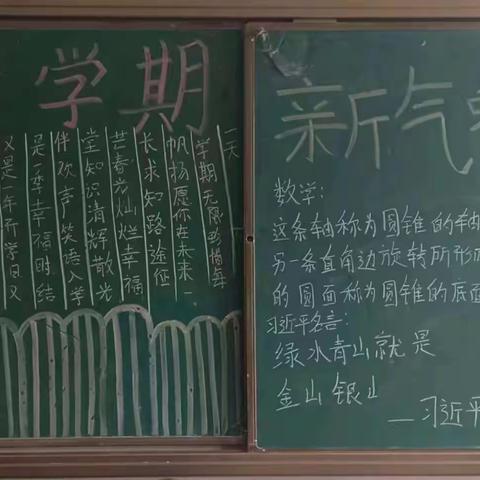 学期
又是一年开学日又
是一季幸福时结
伴欢声笑语入学
堂知识清辉散光
芒春光灿烂幸福
长求知路途征
帆扬愿你在未来
学期无限珍惜每
一天
新气
数学:
这条轴称为圆锥的轴
另一条直角边旋转所形
的圆面称为圆锥的底面
习近平名言:
绿水青山就是
金山银山
—习近平